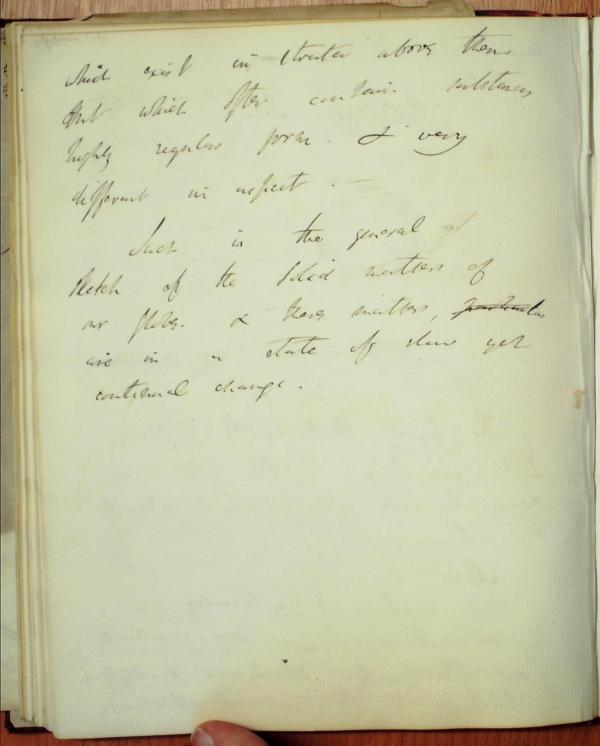 which exist in strata above them
but which often contain substances
highly regular form. & very
different in aspect. —
Such is the general of
sketch of the solid matters of
our globe. & these matters,
are in a state of slow yet
continual change.